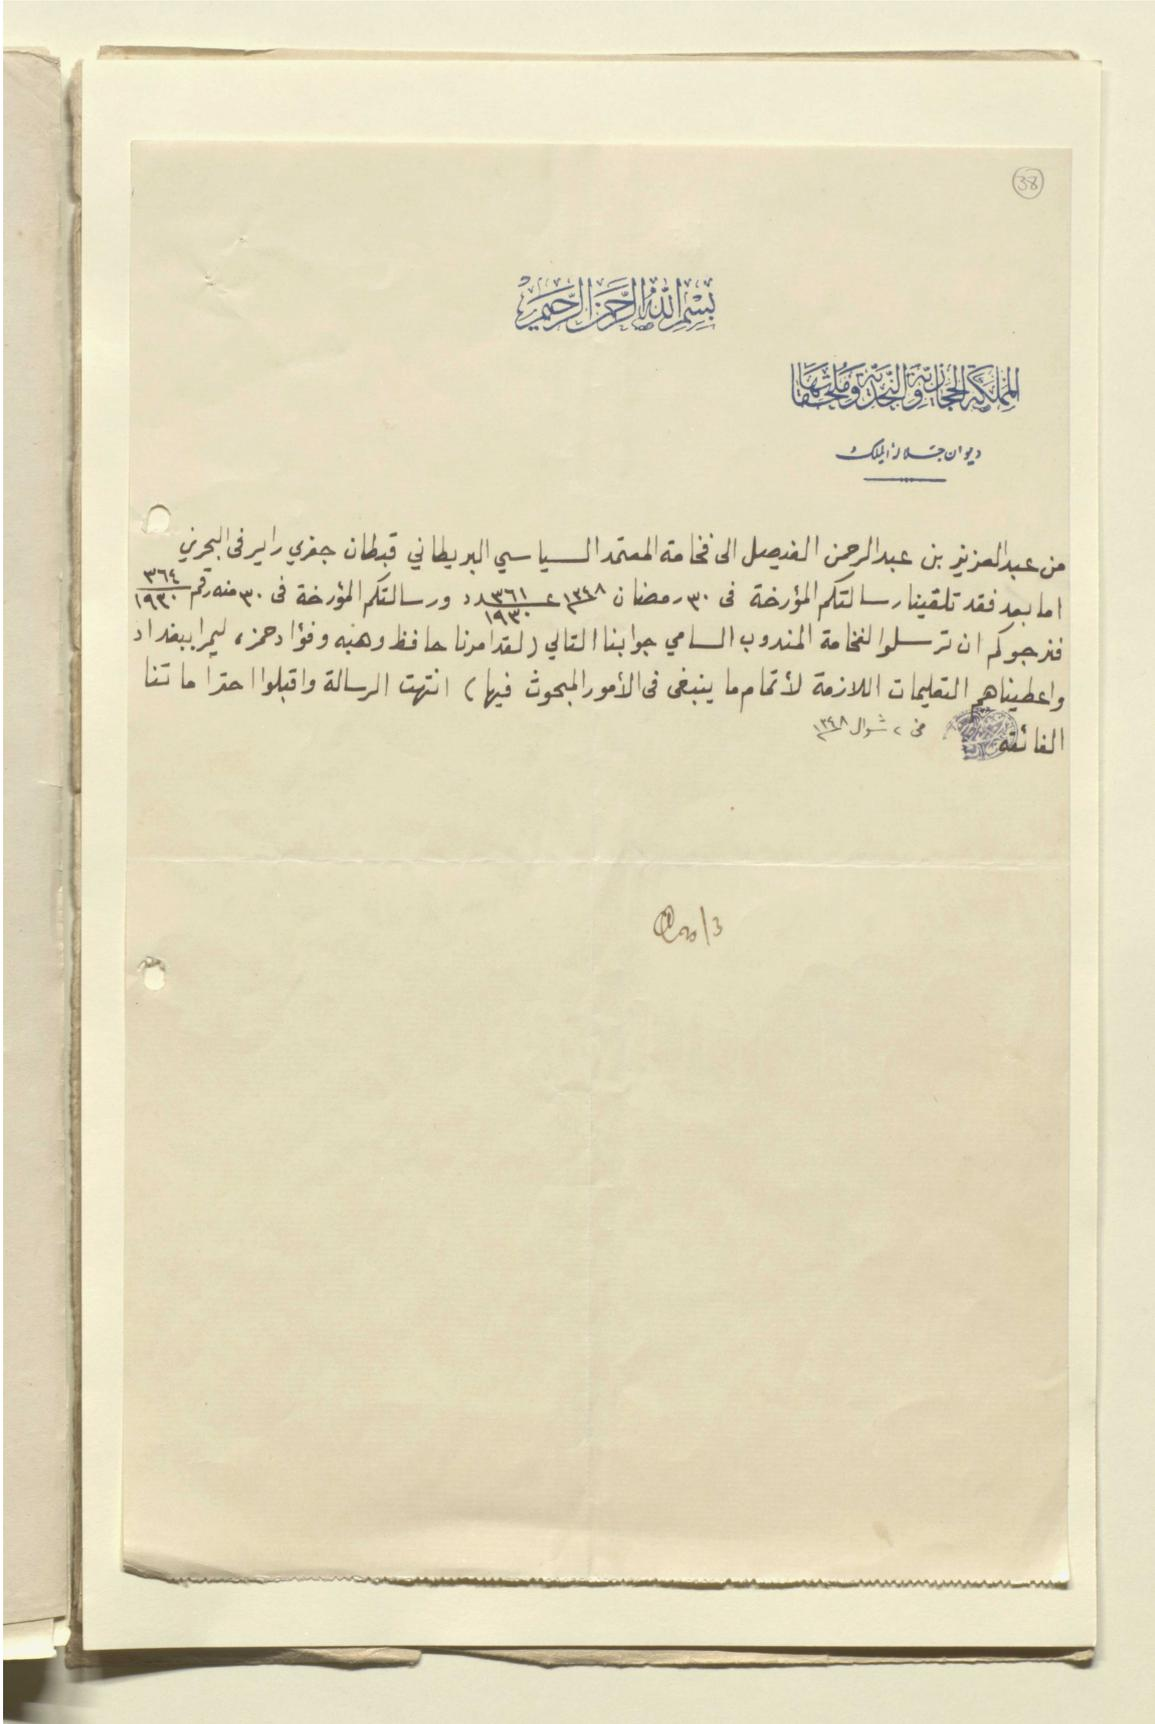 38
بسم الله الرحمن الرحيم
المملكة الحجازية والنجدية وملحقاتها
ديوان جلالة الملك
من عبدالعزيز بن عبدالرحمن الفيصل الى فخامة المعتمد السياسي البريطاني قبطان جفري راير فى البحرين
اما بعد فقد تلقينا رسالتكم المؤرخة فى ٣٠ رمضان ١٣٤٨ عـ٣٦١/١٩٣٠ـدد ورسالتكم المؤرخة فى ٣٠ منه رقم ٣٦٤/١٩٣٠
فنرجوكم ان ترسلوا لفخامة المندوب السامي جوابنا التالي (لقد امرنا حافظ وهبه وفؤاد حمزه ليمرا ببغداد
واعطيناهم التعليمات اللازمة لأتمام ما ينبغى فى الأمور المبحوث فيها) انتهت الرسالة واقبلوا احتراماتنا
الفائقه فى ٢ شوال ١٣٤٨